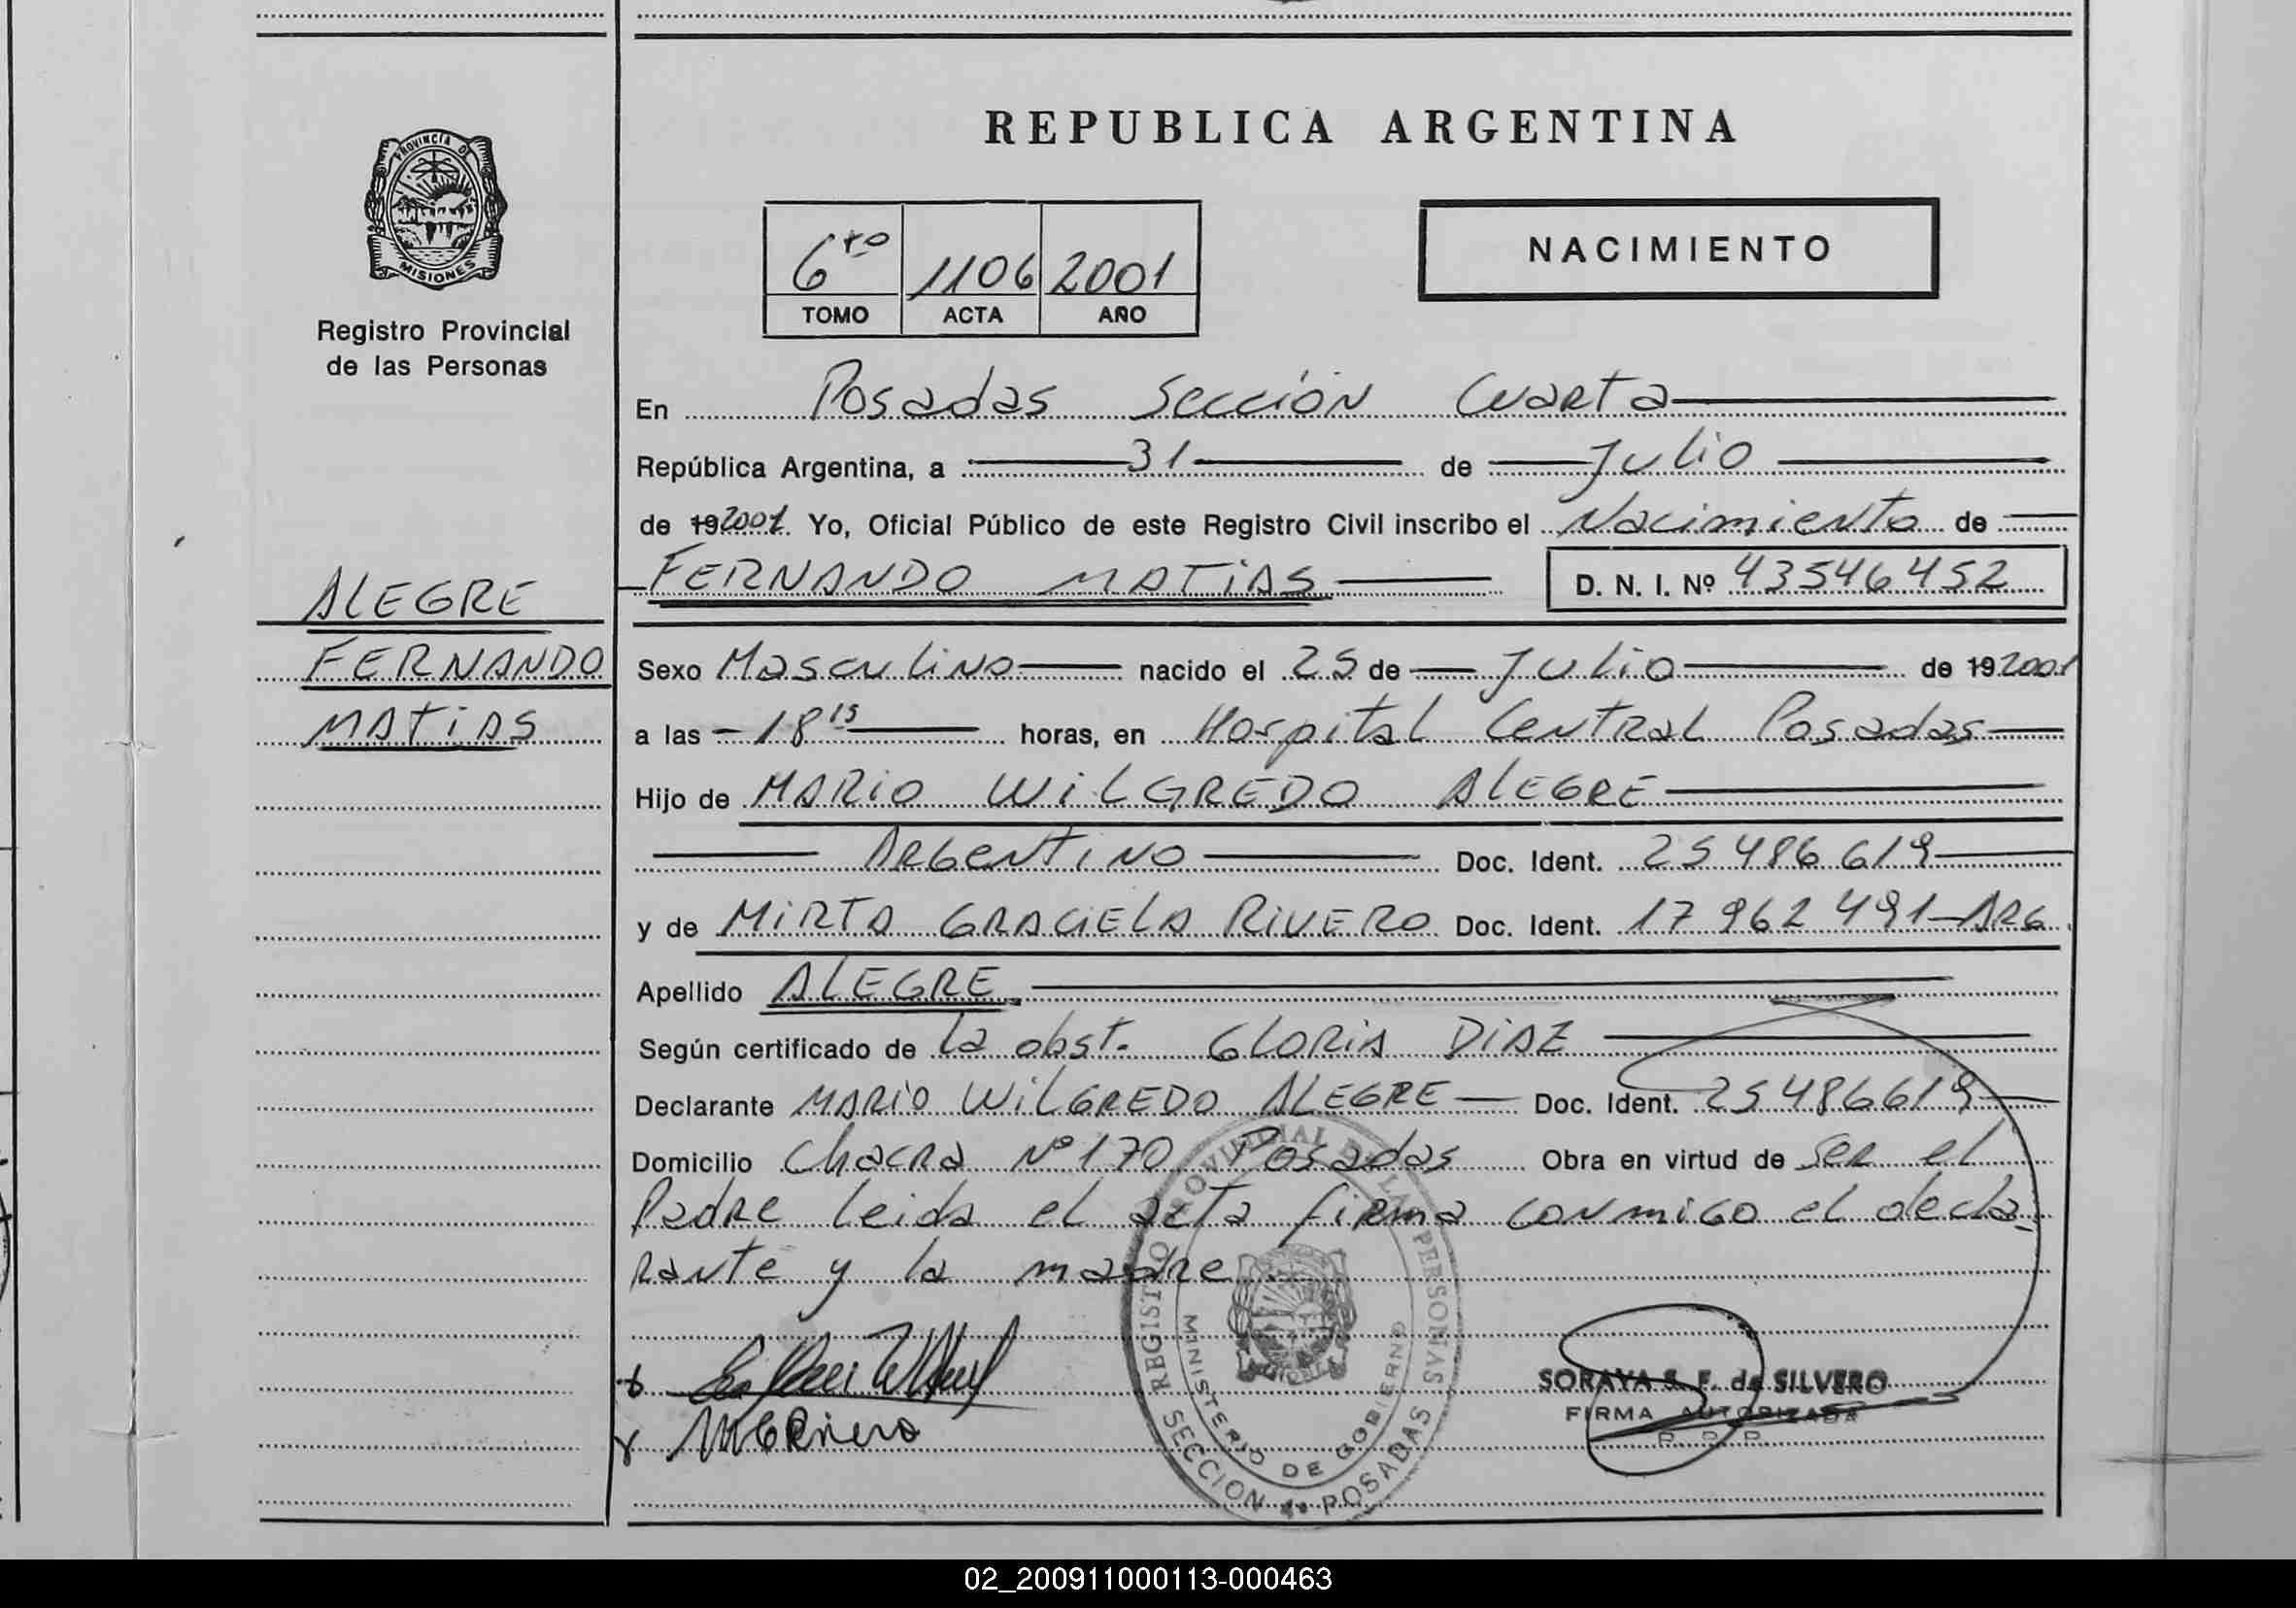 REPUBLICA ARGENTINA
PROVINCIA DE MISIONES
Registro Provincial
de las Personas
6to 1106 2001
TOMO ACTA AÑO
NACIMIENTO
En Posadas Sección Cuarta
República Argentina, a 31 de Julio
de 192001 Yo, Oficial Público de este Registro Civil inscribo el Nacimiento de
ALEGRE
FERNANDO
MATIAS
FERNANDO MATIAS D. N. I. Nº 43546452
Sexo Masculino nacido el 25 de Julio de 192001
a las 18 15 horas, en Hospital Central Posadas
Hijo de MARIO WILGREDO ALEGRE
Argentino Doc. Ident. 25486619
y de MIRTA GRACIELA RIVERO Doc. Ident. 17 962 491-ARG.
Apellido ALEGRE
Según certificado de la obst. GLORIA DIAZ
Declarante MARIO WILGREDO ALEGRE Doc. Ident. 25486619
Domicilio Chacra Nº 170 Posadas Obra en virtud de ser el
Padre leida el acta firma conmigo el decla-
rante y la madre
MGRivero
REGISTRO PROVINCIAL DE LAS PERSONAS
MINISTERIO DE GOBIERNO
SECCION 4º POSADAS
SORAYA S. F. de SILVERO
FIRMA AUTORIZADA
R. P. P.
02_200911000113-000463